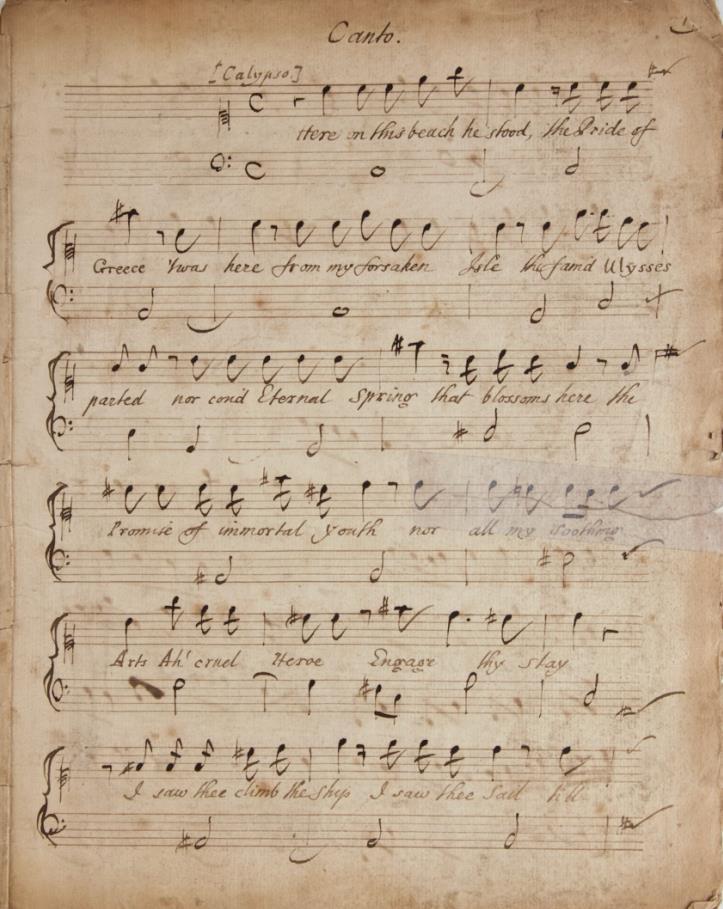 Canto.
[Calypso]
Here on this beach he stood, the Pride of
Greece 'twas here from my forsaken Isle the famd Ulysses
parted nor coud Eternal Spring that blossoms here the
Promise of immortal youth nor all my soothing
Arts Ah! cruel Heroe Engage thy stay
I saw thee climb the ship I saw thee Sail till